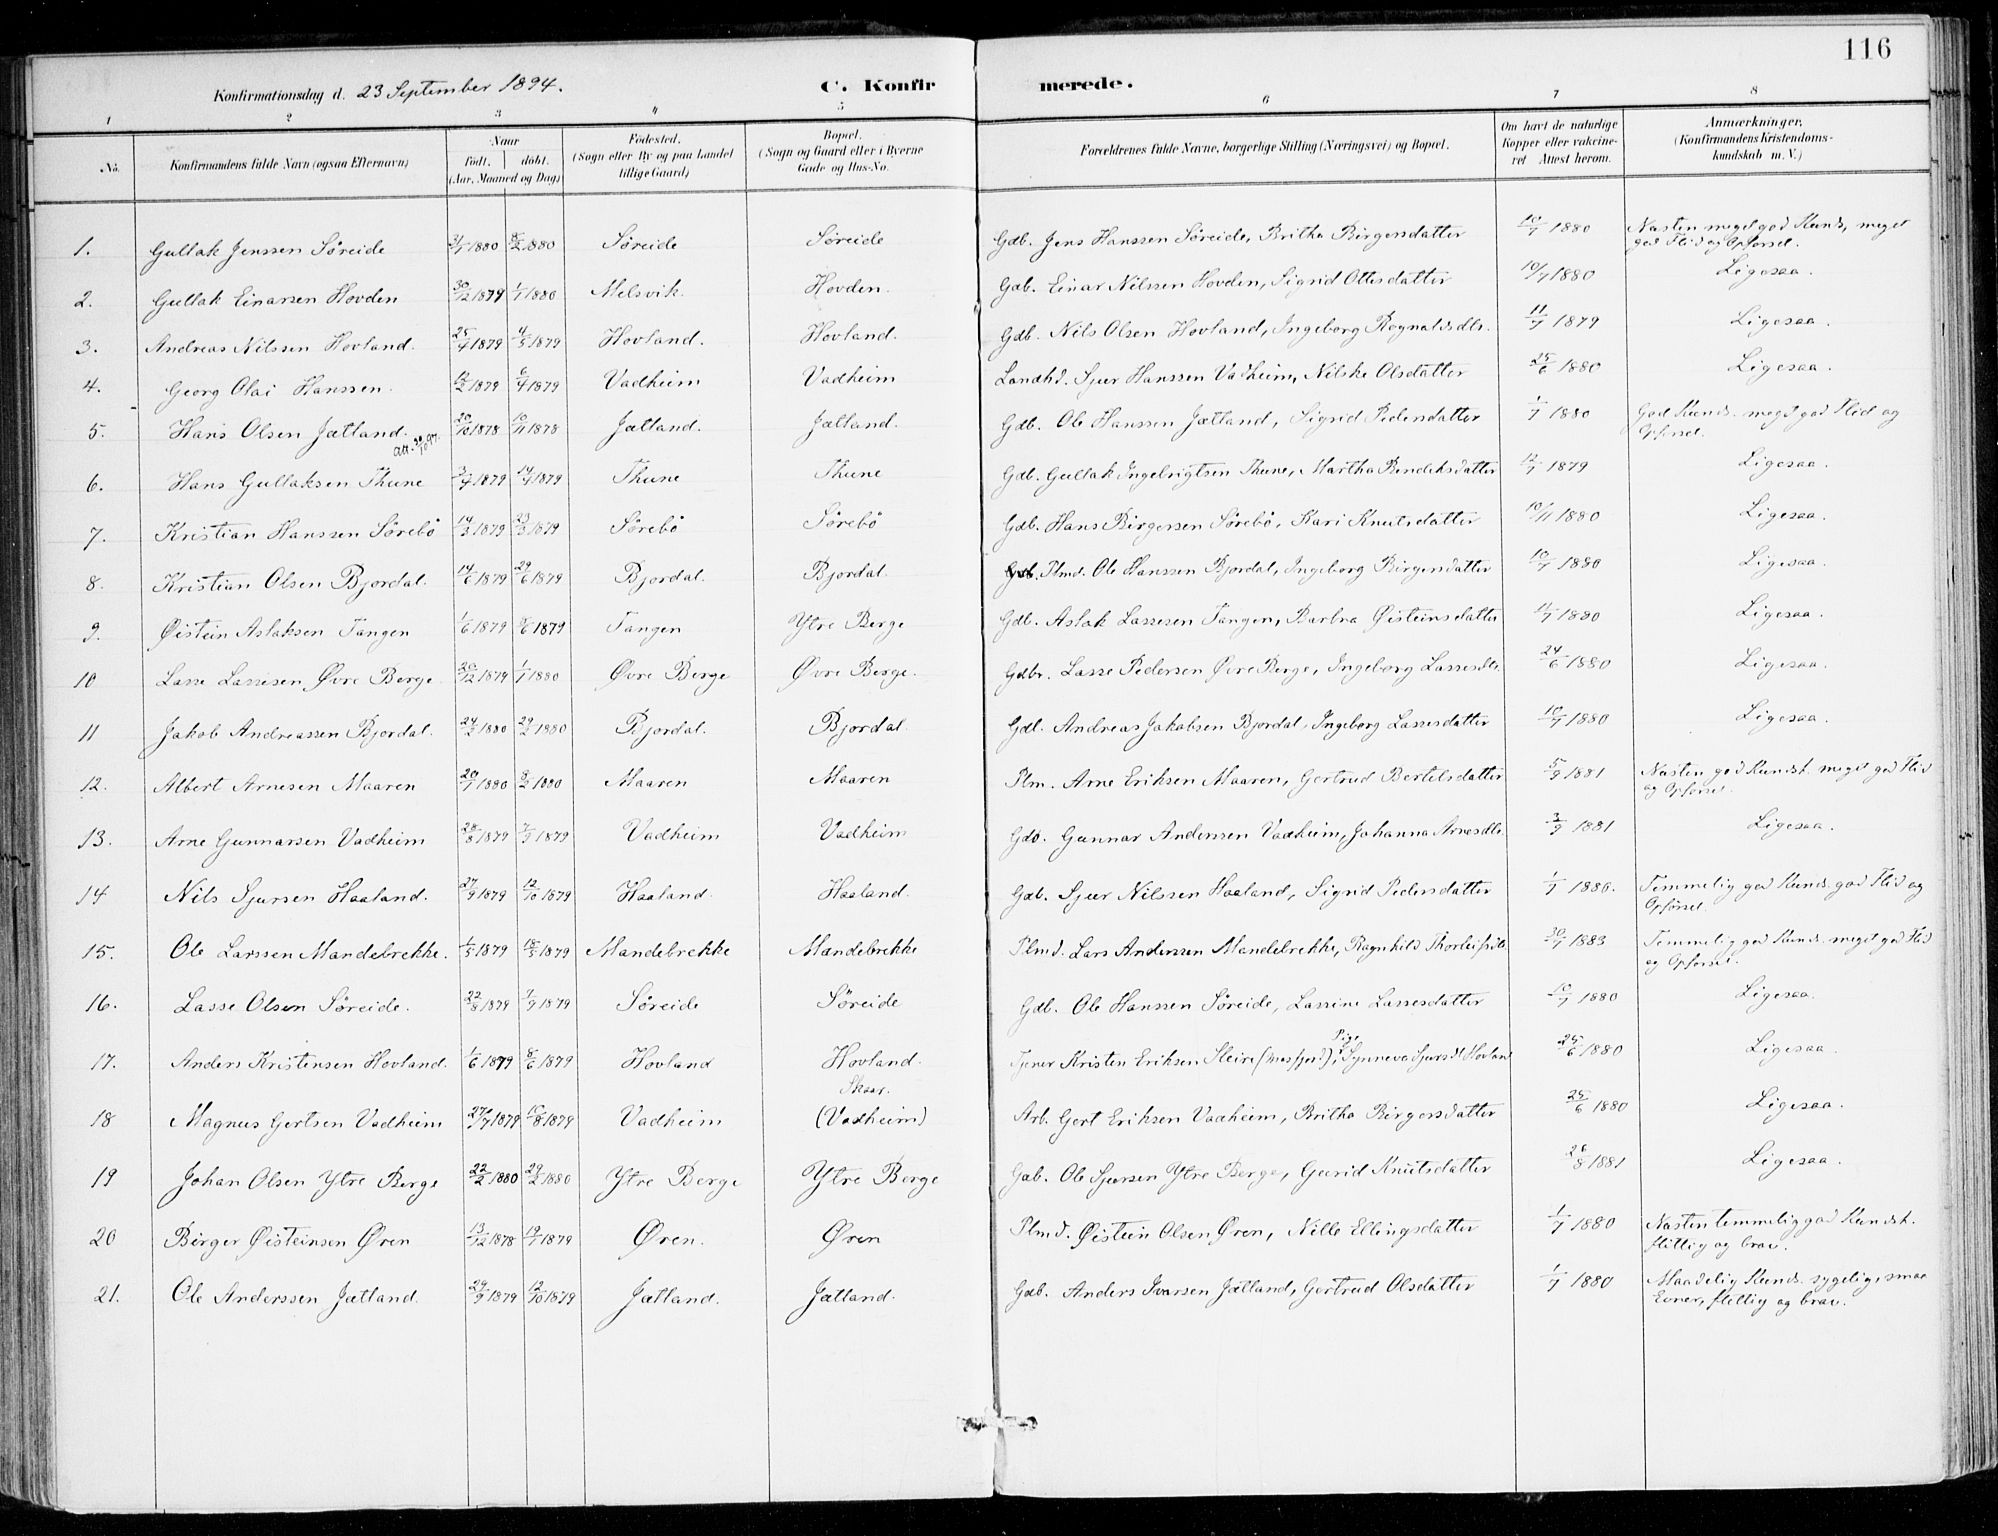 116
Konfirmationsdag d. 23 September 1894. C. Konfirmerede.
1 2 3 4 5 6 7 8
No. Konfirmandens fulde Navn (ogsaa Efternavn) Naar født. døbt. (Aar, Maaned og Dag) Fødested. (Sogn eller By og paa Landet tillige Gaard) Bopæl. (Sogn og Gaard eller i Byerne Gade og Hus-No. Forældrenes fulde Navne, borgerlige Stilling (Næringsvei) og Bopæl. Om havt de naturlige Kopper eller vakcineret Attest herom. Anmærkninger, (Konfirmandens Kristendomskundskab m. V.)
1. Gullak Jenssen Söreide 1880 8/2 1880 Söreide Söreide Gdb. Jens Hanssen Söreide, Britha Birgersdatter 10/7 1880 Næsten meget god Kunds, meget god Flid og Opförsel.
2. Gullak Einarsen Hovden 30/12 1879 1/1 1880 Melsvik. Hovden. Gdb. Einar Nilssen Hovden, Sigrid Ottesdatter 10/7 1880 Ligesaa.
3. Andreas Nilssen Hovland. 25/4 1879 4/5 1879 Hovland. Hovland. Gdb. Nils Olsen Hovland, Ingeborg Rognaldsdtr. 11/7 1879 Ligesaa.
4. Georg Olai Hanssen. 1879 6/4 1879 Vadheim Vadheim Landhd. Sjur Hanssen Vadheim, Nilske Olsdatter 25/6 1880 Ligesaa.
5. Hans Olsen Jætland. 20/10 1878 10/11 1878 Jætland. Jætland. Gdb. Ole Hanssen Jætland, Sigrid Pedersdatter 1/7 1880 God Kunds. meget god Flid og Opförsel.
att. 30/10 97.
6. Hans Gullaksen Thune 1879 14/4 1879 Thune Thune Gdb. Gullak Ingebrigtsen Thune, Martha Bendiksdatter 12/7 1879 Ligesaa.
7. Kristian Hanssen Sörebö 14/3 1879 23/3 1879 Sörebö Sörebö Gdb. Hans Birgersen Sörebö, Kari Knutsdatter 10/11 1880 Ligesaa.
8. Kristian Olsen Bjordal. 14/6 1879 29/6 1879 Bjordal. Bjordal. Plmd. Ole Hanssen Bjordal, Ingeborg Birgersdatter 10/7 1880 Ligesaa.
9. Øistein Aslaksen Tangen 1/6 1879 8/6 1879 Tangen Ytre Berge Gdb. Aslak Lassesen Tangen, Barbra Øisteinsdatter 11/7 1880 Ligesaa.
10 Lasse Lassesen Øvre Berge 20/12 1879 1/1 1880 Øvre Berge Øvre Berge. Gdbr. Lasse Pedersen Øvre Berge, Ingeborg Lassesdtr. 24/6 1880 Ligesaa.
11 Jakob Andreassen Bjordal. 24/2 1880 29/2 1880 Bjordal. Bjordal. Gdb. Andreas Jakobsen Bjordal, Ingeborg Lassesdatter 10/7 1880 Ligesaa.
12. Albert Arnesen Maaren 20/1 1880 8/2 1880 Maaren Maaren Plm. Arne Eriksen Maaren, Gertrud Bertelsdatter 5/9 1881 Næsten god Kundsk. meget god Flid og Opförsel.
13. Arne Gunnarsen Vadheim 28/8 1879 7/9 1879 Vadheim Vadheim Gdb. Gunnar Anderssen Vadheim, Johanna Arnesdtr. 3/9 1881 Ligesaa.
14 Nils Sjursen Haaland. 27/9 1879 12/10 1879 Haaland. Haaland. Gdb. Sjur Nilssen Haaland, Sigrid Pedersdatter 1/7 1880. Temmelig god Kunds. god Flid og Opförsel.
15. Ole Larssen Mandebrekke. 1/5 1879 18/5 1879 Mandebrekke Mandebrekke Plmd. Lars Anderssen Mandebrekke, Ragnhild Thorleifsdtr 20/7 1883 Temmelig god Kunds. meget god Flid og Opförsel.
16. Lasse Olsen Söreide. 22/8 1879 7/9 1879 Söreide Söreide Gdb. Ole Hanssen Söreide, Lassine Lassesdatter 10/7 1880 Ligesaa.
17. Anders Kristensen Hovland. 1/6 1879 8/6 1879 Hovland Hovland. Tjener Kristen Eriksen Sleire (Masfjord), Pige Synneva Sjursdt Hovland 25/6 1880 Ligesaa.
18 Magnus Gertsen Vadheim 27/7 1879 10/8 1879 Vadheim Skaar. (Vadheim) Arb. Gert Eriksen Vadheim, Britha Birgersdatter 25/6 1880 Ligesaa.
19 Johan Olsen Ytre Berge 22/2 1880 29/2 1880 Ytre Berge Ytre Berge Gdb. Ole Sjursen Ytre Berge, Guorid Knutsdatter 26/8 1881 Ligesaa.
20 Birger Øisteinsen Øren 13/12 1878 19/1 1879 Øren. Øren Plmd. Øistein Olsen Øren, Nille Ellingsdatter 1/7 1880 Næsten temmelig god Kundsk. flittig og brav.
21. Ole Anderssen Jætland. 29/9 1879 12/10 1879 Jætland. Jætland. Gdb. Anders Ivarsen Jætland, Gertrud Olsdatter 1/7 1880 Maadelig Kunds. sygelig, smaa Evner, flittig og brav.